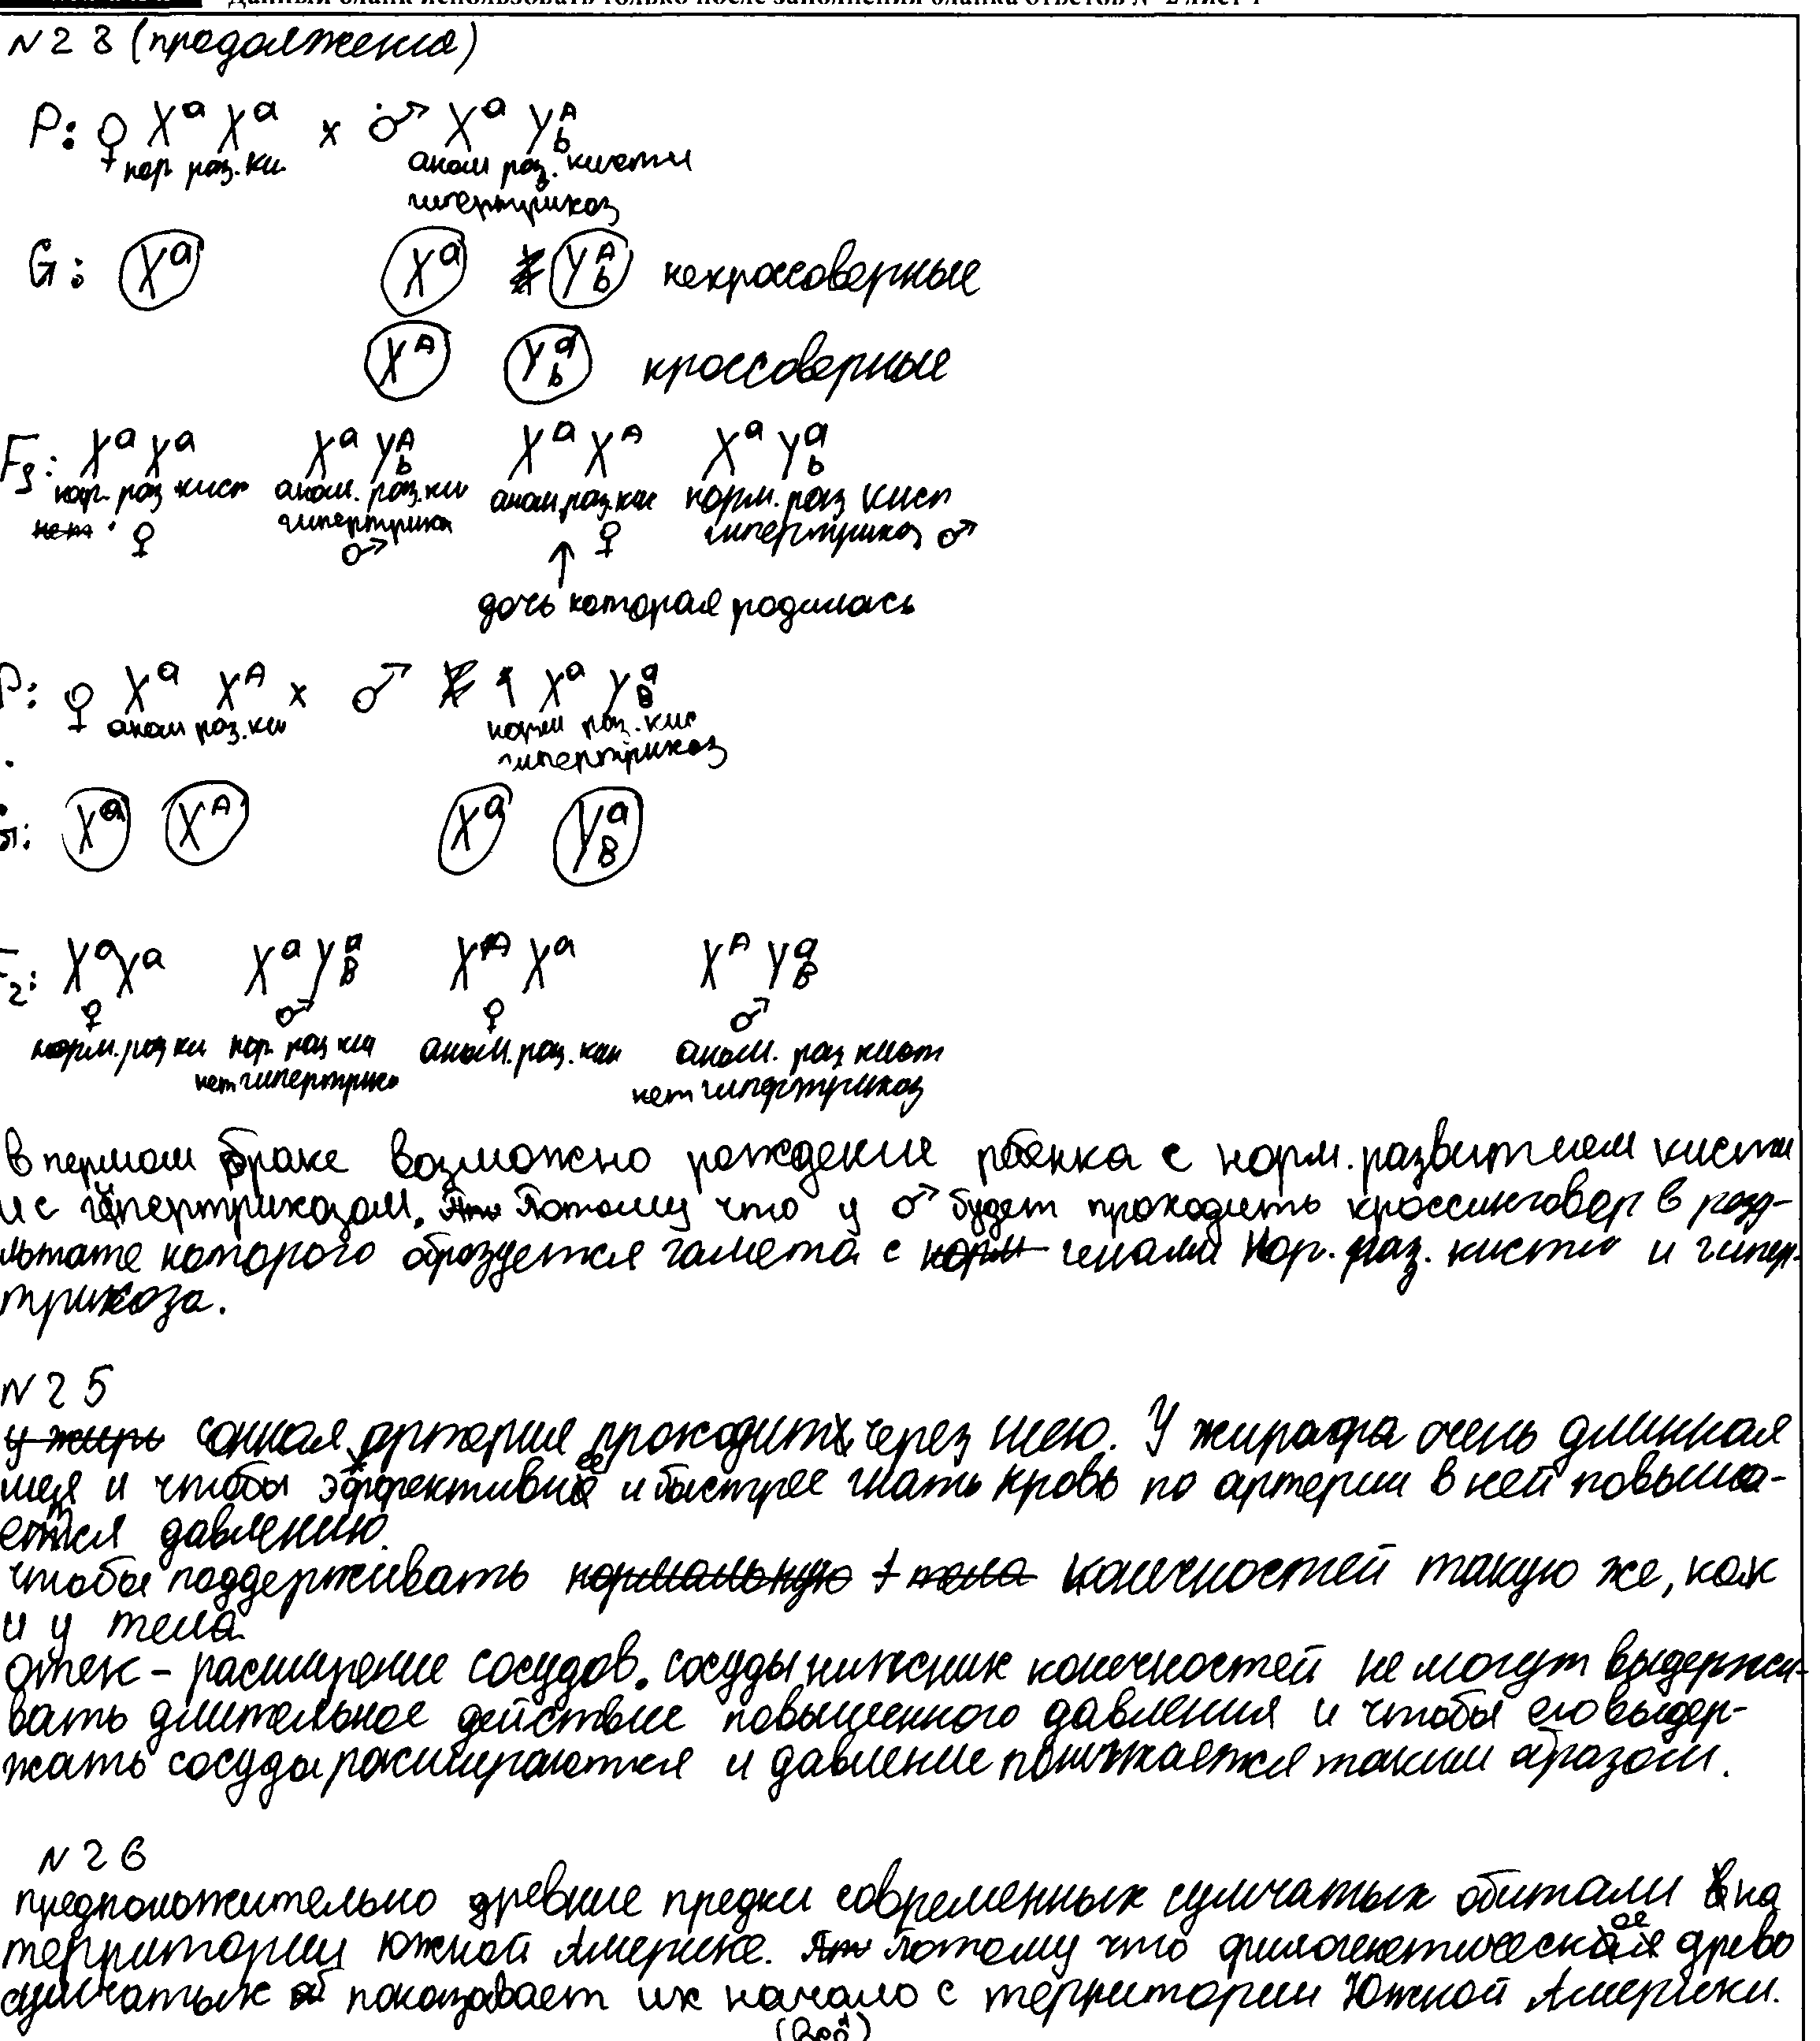 Данный бланк использовать только после заполнения бланка ответов № 2 лист 1
N28 (продолжение)
P: ♀ XᵃXᵃ x ♂ Xᵃ Yᴬb
нор. раз. ки. аном раз. кисти
гипертрихоз
G: Xᵃ Xᵃ Yᴬb некроссоверные
Xᴬ Yᵃb кроссоверные
F₁: XᵃXᵃ XᵃYᴬb XᵃXᴬ XᵃYᵃb
нор. раз кист аном. раз. ки аном. раз. кис норм. раз кисп
нет ♀ гипертрихо ♂ ♀ гипертрихоз ♂
↑
дочь которая родилась
P: ♀ Xᵃ Xᴬ x ♂ Xᵃ YᵃB
аном раз. ки норм раз. кис
гипертрихоз
G: Xᵃ Xᴬ Xᵃ YᵃB
F₂: XᵃXᵃ XᵃYᵃB XᴬXᵃ XᴬYᵃB
♀ ♂ ♀ ♂
норм. раз ки нор. раз ки аном. раз. ки аном. раз кист
нет гипертрихо нет гипертрихоз
в первом браке возможно рождение ребенка с норм. развитием кисти
и с гипертрихозом. Потому что у ♂ будет проходить кроссинговер в резу-
льтате которого образуется гамета с норм генами нор. раз. кисти и гипер-
трихоза.
N25
у жира сонная артерия проходит через шею. У жирафа очень длинная
шея и чтобы эффективнее и быстрее гнать кровь по артерии в ней повыша-
ется давлению.
чтобы поддерживать нормальную t тела конечностей такую же, как
и у тела
отек - расширение сосудов. сосуды нижних конечностей не могут выдержи-
вать длительное действие повышенного давления и чтобы его выдер-
жать сосуды расширяются и давление понижается таким образом.
N26
предположительно древние предки современных сумчатых обитали на
территории Южной Америке. потому что филогенетическое древо
сумчатых показывает их начало с территории Южной Америки.